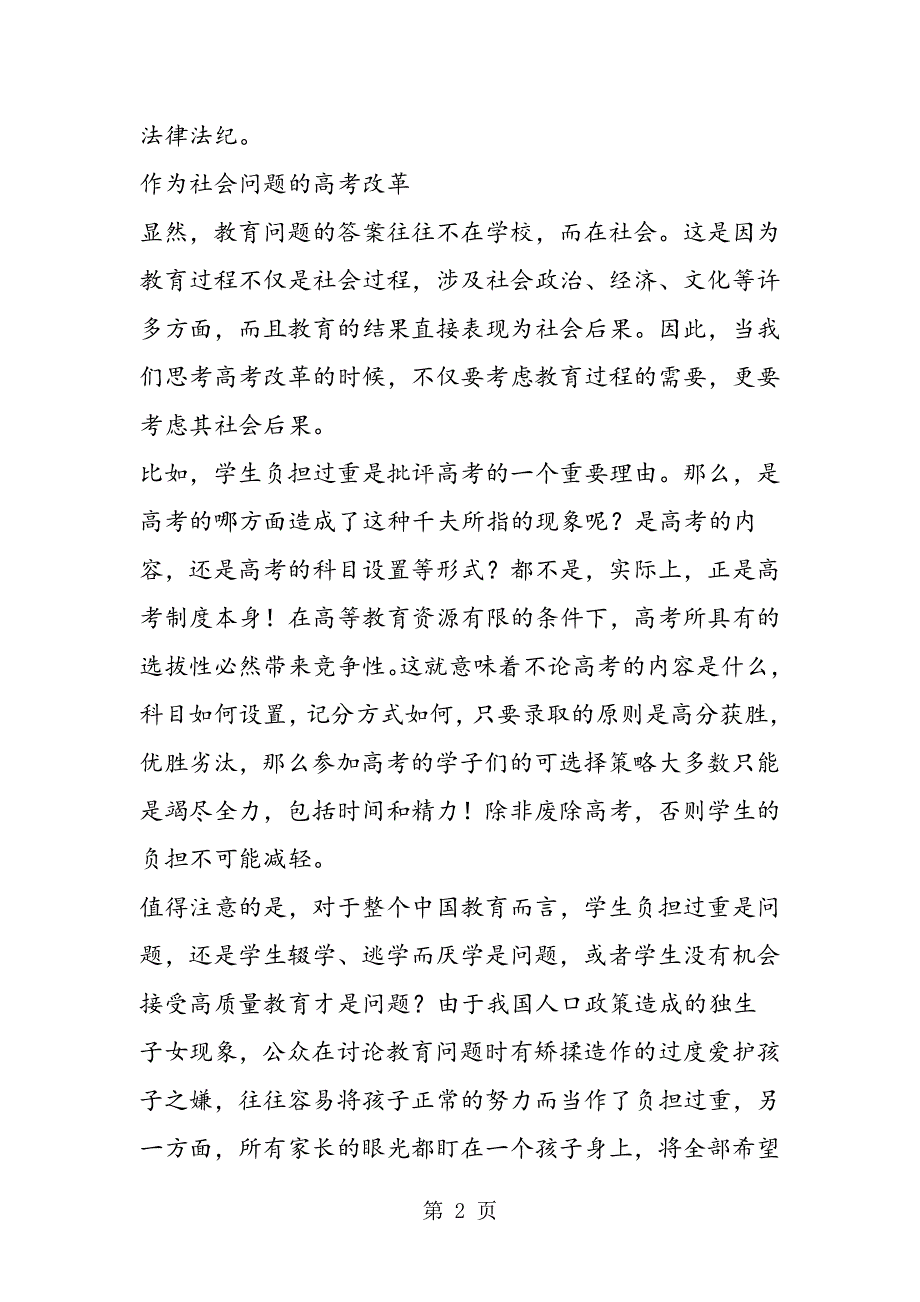 法律法纪。
作为社会问题的高考改革
显然，教育问题的答案往往不在学校，而在社会。这是因为
教育过程不仅是社会过程，涉及社会政治、经济、文化等许
多方面，而且教育的结果直接表现为社会后果。因此，当我
们思考高考改革的时候，不仅要考虑教育过程的需要，更要
考虑其社会后果。
比如，学生负担过重是批评高考的一个重要理由。那么，是
高考的哪方面造成了这种千夫所指的现象呢？是高考的内
容，还是高考的科目设置等形式？都不是，实际上，正是高
考制度本身！在高等教育资源有限的条件下，高考所具有的
选拔性必然带来竞争性。这就意味着不论高考的内容是什么，
科目如何设置，记分方式如何，只要录取的原则是高分获胜，
优胜劣汰，那么参加高考的学子们的可选择策略大多数只能
是竭尽全力，包括时间和精力！除非废除高考，否则学生的
负担不可能减轻。
值得注意的是，对于整个中国教育而言，学生负担过重是问
题，还是学生辍学、逃学而厌学是问题，或者学生没有机会
接受高质量教育才是问题？由于我国人口政策造成的独生
子女现象，公众在讨论教育问题时有矫揉造作的过度爱护孩
子之嫌，往往容易将孩子正常的努力而当作了负担过重，另
一方面，所有家长的眼光都盯在一个孩子身上，将全部希望
第 2 页